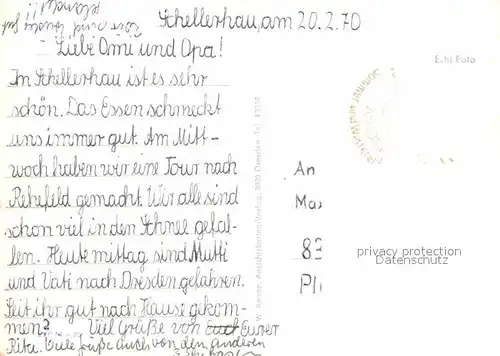 Schellerhau, am 20.2.70
Wir sind wieder gut
gelandet!!
Liebe Omi und Opa!
Im Schellerhau ist es sehr
schön. Das Essen schmeckt
uns immer gut. Am Mitt-
woch haben wir eine Tour nach
Rehefeld gemacht. Wir alle sind
schon viel in den Schnee gefal-
len. Heute mittag sind Mutti
und Vati nach Dresden gefahren.
Seit ihr gut nach Hause gekom-
men? Viel Grüße von Euch Eurer
Rita. Viele Grüße auch von den anderen
Echt Foto
An
Ma
83
Pl
privacy protection
Datenschutz
Ansichtskartenverlag, 8020 Dresden, Tel.